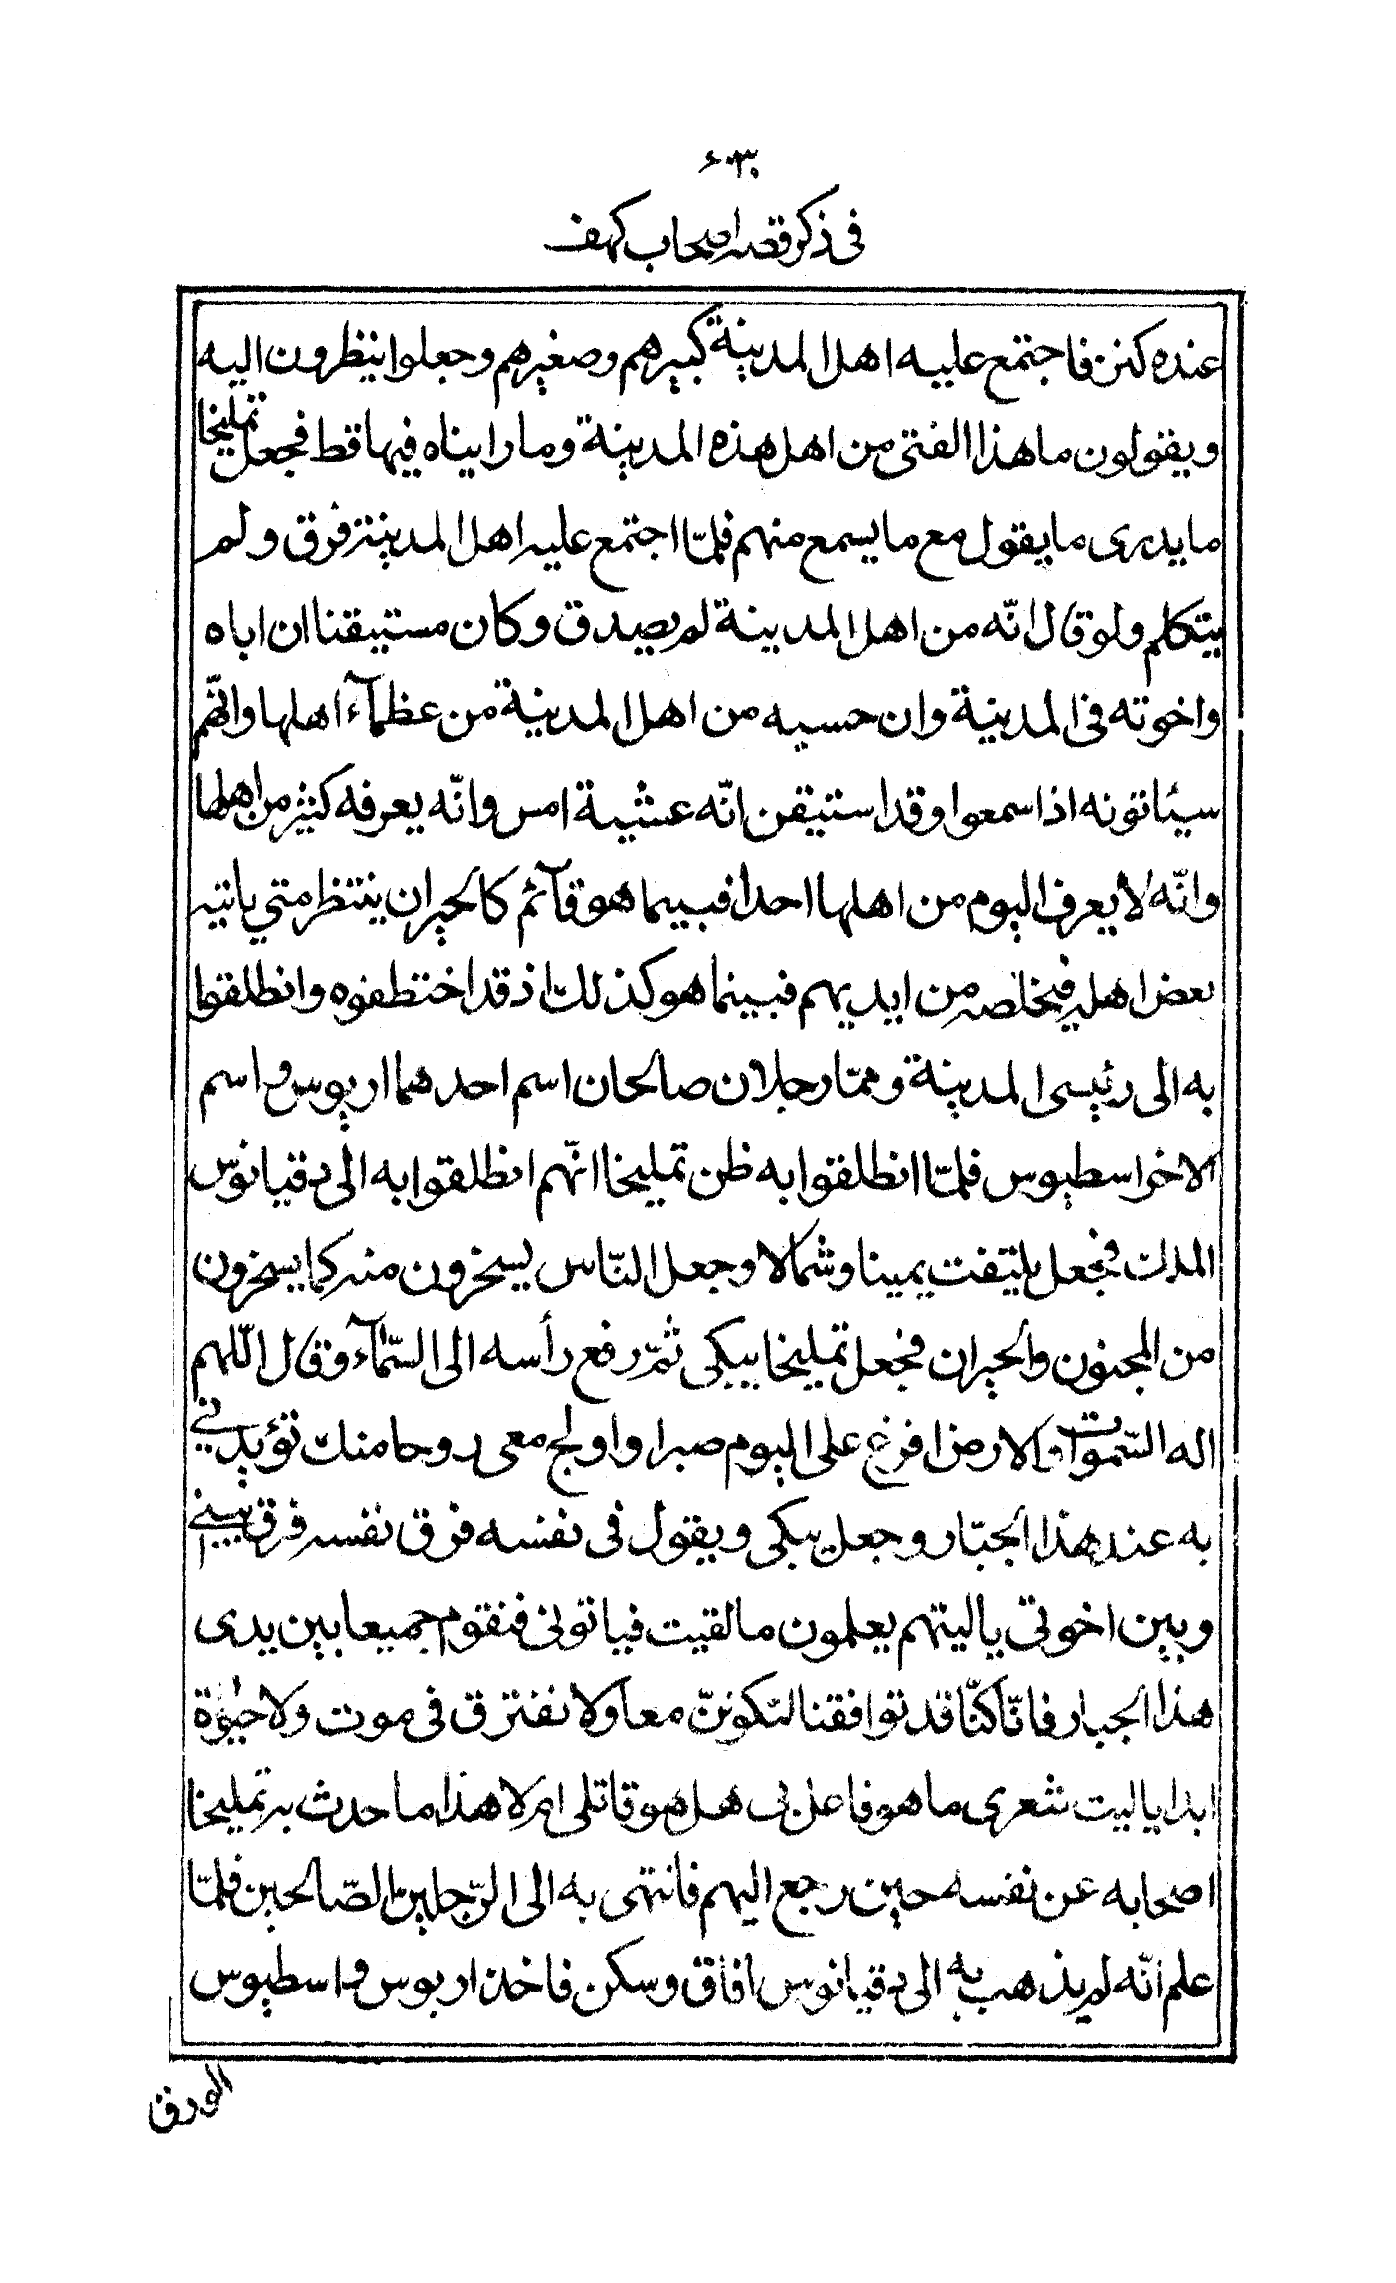 ٦٠٣
في ذكر قصه اصحاب كهف
عنده كنز فاجتمع عليه اهل المدينة كبيرهم وصغيرهم وجعلوا ينظرون اليه
ويقولون ما هذا الفتى من اهل هذه المدينة وما رايناه فيها قط فجعل تمليخا
ما يدرى ما يقول مع ما يسمع منهم فلمّا اجتمع عليه اهل المدينة فرق ولم
يتكلم ولو قال انّه من اهل المدينة لم يصدق وكان مستيقنا ان اباه
واخوته في المدينة وان حسبه من اهل المدينة من عظمآء اهلها وانّهم
سيئاتونه اذا سمعوا وقد استيقن انّه عشية امس وانّه يعرفه كثير من اهلها
وانّه لا يعرف اليوم من اهلها احدا فبينما هو قآئم كالحيران ينتظر متي ياتيه
بعض اهله فيخلصه من ايديهم فبينما هو كذلك اذ قد اختطفوه وانطلقوا
به الى رئيسى المدينة وهمّا رجلان صالحان اسم احدهما اريوس واسم
الاخر اسطيوس فلمّا انطلقوا به ظن تمليخا انّهم انطلقوا به الى دقيانوس
الملك فجعل يلتفت يمينا وشمالا وجعل النّاس يسخرون منه كما يسخرون
من المجنون والحيران فجعل تمليخا يبكى ثمّ رفع رأسه الى السّمآء وقال اللّهم
اله السّموات والارض افرغ على اليوم صبرا واولج معى روحا منك تؤيدني
به عند هذا الجبّار وجعل يبكى ويقول في نفسه فرق نفسه فرق بيني
وبين اخوتي ياليتهم يعلمون ما لقيت فياتوني فنقوم جميعا بين يدى
هذا الجبار فانّا كنّا قد توافقنا لنكوننّ معا ولا نفترق في موت ولا حيوة
ابدا ياليت شعرى ما هو فاعل بي هل هو قاتلى ام لا هذا ما حدث به تمليخا
اصحابه عن نفسه حين رجع اليهم فانتهى به الى الرّجلين الصّالحين فلمّا
علم انّه لم يذهب به الى دقيانوس افاق وسكن فاخذ اريوس واسطيوس
الورق